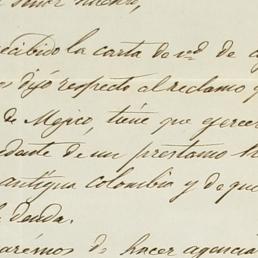 señor nuestro,
recibido la carta de vd. de
dejó respecto al reclamo
de Mejico, tiene que ejercer
de un prestamo
antigua colombia y de que
deuda.
de hacer agencia